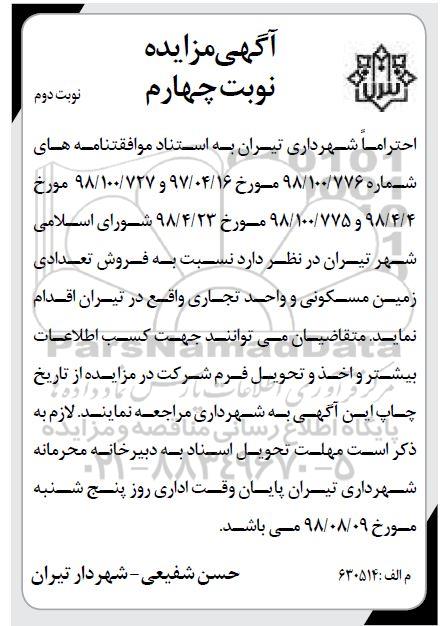 آگهی مزایده
نوبت چهارم
نوبت دوم
احتراماً شهرداری تیران به استناد موافقتنامه های
شماره ۹۸/۱۰۰/۷۷۶ مورخ ۹۷/۰۴/۱۶ و ۹۸/۱۰۰/۷۲۷ مورخ
۹۸/۴/۴ و ۹۸/۱۰۰/۷۷۵ مورخ ۹۸/۴/۲۳ شورای اسلامی
شهر تیران در نظر دارد نسبت به فروش تعدادی
زمین مسکونی و واحد تجاری واقع در تیران اقدام
نماید. متقاضیان می توانند جهت کسب اطلاعات
بیشتر و اخذ و تحویل فرم شرکت در مزایده از تاریخ
چاپ این آگهی به شهرداری مراجعه نمایند. لازم به
ذکر است مهلت تحویل اسناد به دبیرخانه محرمانه
شهرداری تیران پایان وقت اداری روز پنج شنبه
مورخ ۹۸/۰۸/۰۹ می باشد.
م الف: ۶۳۰۵۱۴
حسن شفیعی - شهردار تیران
ParsNamadData
پایگاه اطلاع رسانی مناقصه و مزایده
۰۲۱-۸۸۳۴۹۶۷۰-۵